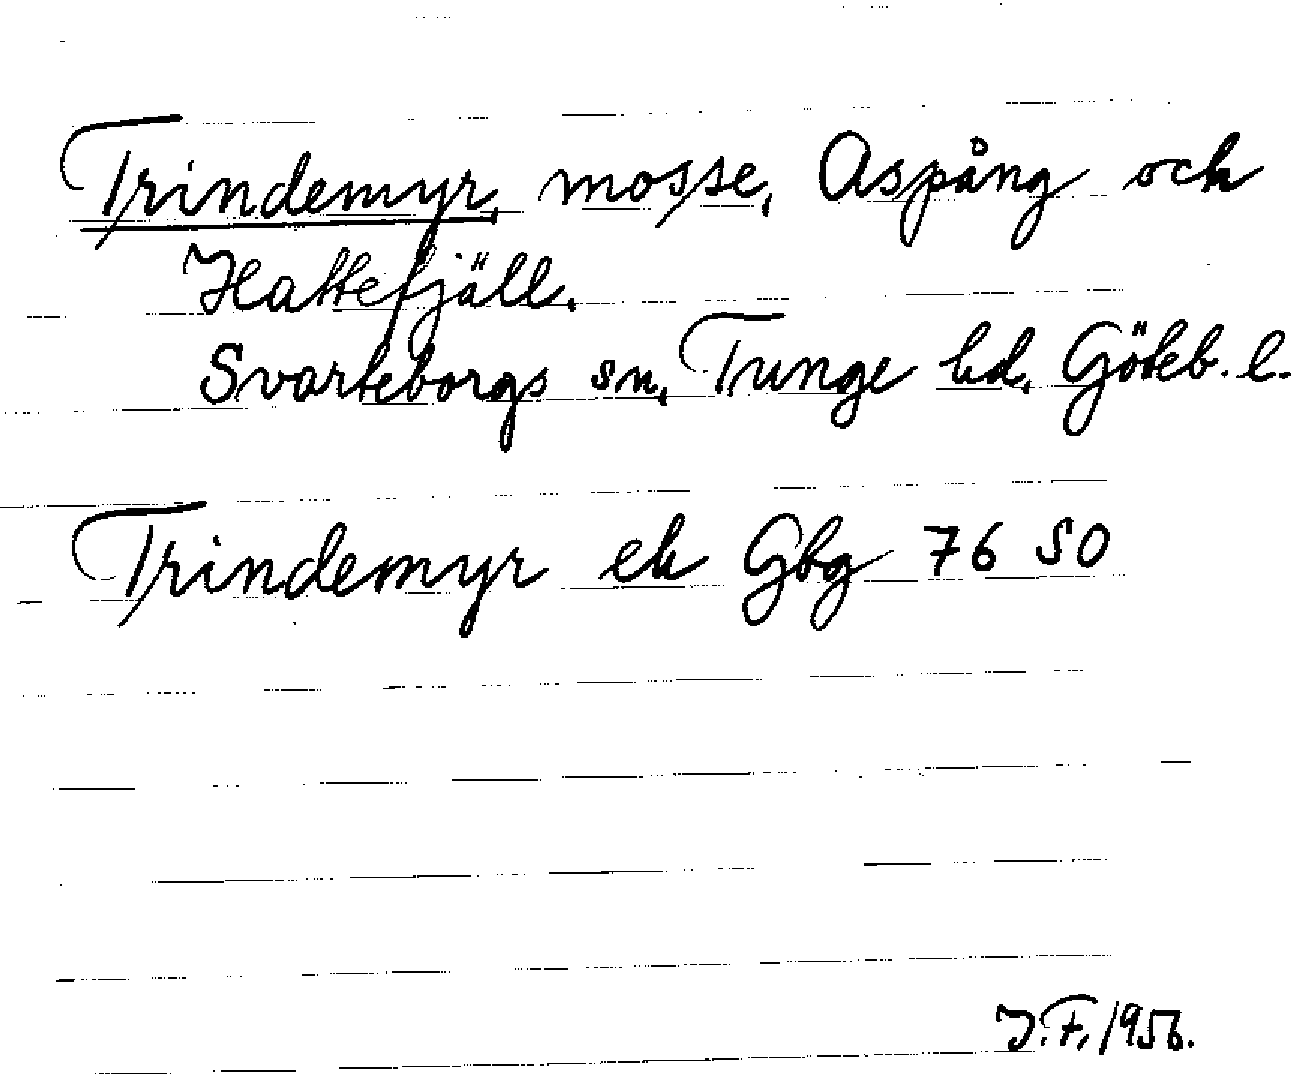 Trindemyr, mosse, Aspång och
Hattefjäll.
Svarteborgs sn, Tunge hd, Göteb. l.
Trindemyr ek Gbg 76 SO
J.F. 1956.